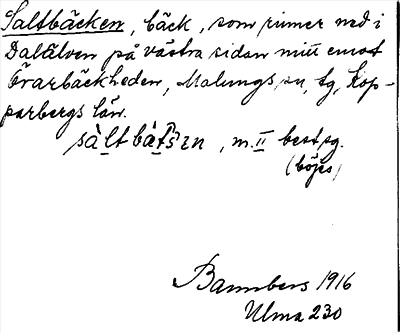 Saltbäcken, bäck, som rinner ned i
Dalälven på västra sidan mitt emot
Örarbäckheden, Malungs sn, tg, Kop-
parbergs län.
sàltbàtsɛn, m. II best. sg.
(böjes)
Bannbers 1916
Ulma 230